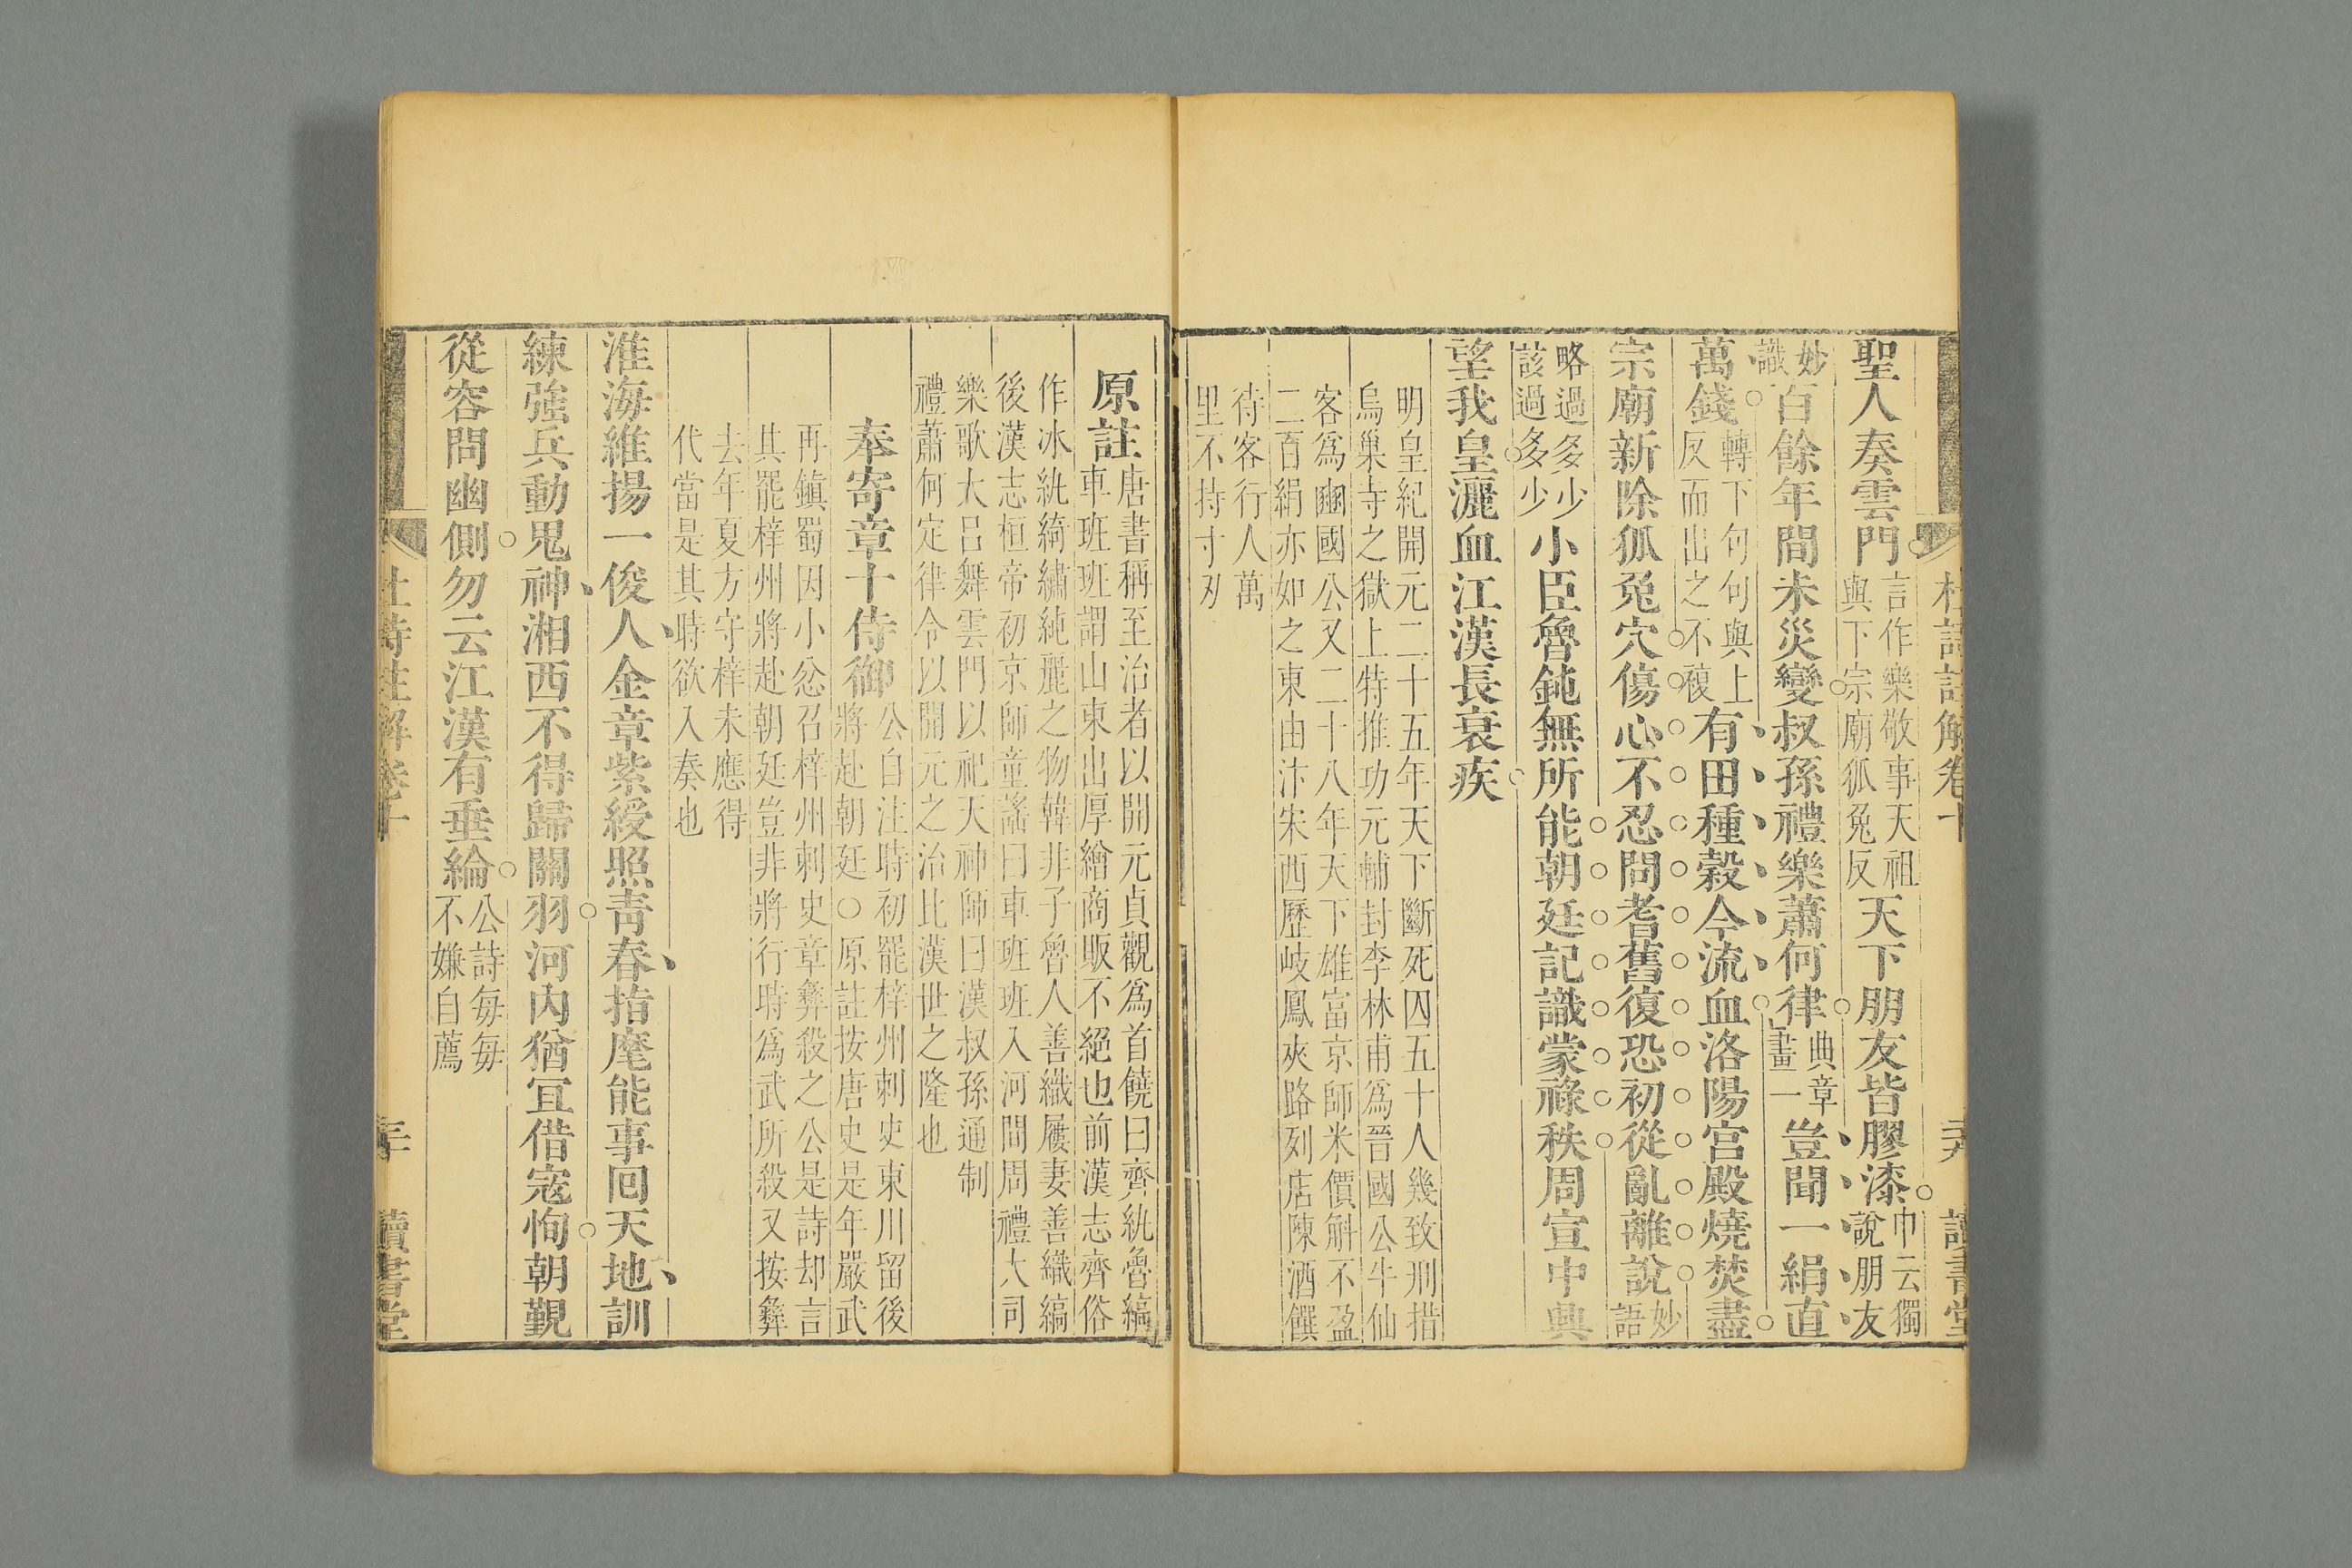 杜詩註解卷十
讀書堂
聖人奏雲門
言作樂敬事天祖
與下宗廟狐兔反
天下朋友皆膠漆
巾云獨
說朋友
妙
識
百餘年間未災變叔孫禮樂蕭何律
典章
畫一
豈聞一絹直
萬錢
轉下句句與上
反而出之不複
有田種穀今流血洛陽宮殿燒焚盡
宗廟新除狐兔穴傷心不忍問耆舊復恐初從亂離說
妙
語
略過多少
該過多少
小臣魯鈍無所能朝廷記識蒙祿秩周宣中興
望我皇灑血江漢長衰疾
明皇紀開元二十五年天下斷死囚五十人幾致刑措
烏巢寺之獄上特推功元輔封李林甫為晉國公牛仙
客爲豳國公又二十八年天下雄富京師米價斛不盈
二百絹亦如之東由汴宋西歷岐鳳夾路列店陳酒饌
待客行人萬
里不持寸刃
原註
唐書稱至治者以開元貞觀爲首饒曰齊紈魯縞
車班班謂山東出厚繒商販不絕也前漢志齊俗
作冰紈綺繡純麗之物韓非子魯人善織屨妻善織縞
後漢志桓帝初京師童謠曰車班班入河間周禮大司
樂歌大呂舞雲門以祀天神師曰漢叔孫通制
禮蕭何定律令以開元之治比漢世之隆也
奉寄章十侍御
公自注時初罷梓州刺史東川留後
將赴朝廷○原註按唐史是年嚴武
再鎮蜀因小忿召梓州刺史章彝殺之公是詩却言
其罷梓州將赴朝廷豈非將行時爲武所殺又按彝
去年夏方守梓未應得
代當是其時欲入奏也
淮海維揚一俊人金章紫綬照青春指麾能事回天地訓
練強兵動鬼神湘西不得歸關羽河內猶宜借寇恂朝覲
從容問幽側勿云江漢有垂綸
公詩每每
不嫌自薦
杜詩註解卷十
三十
讀書堂